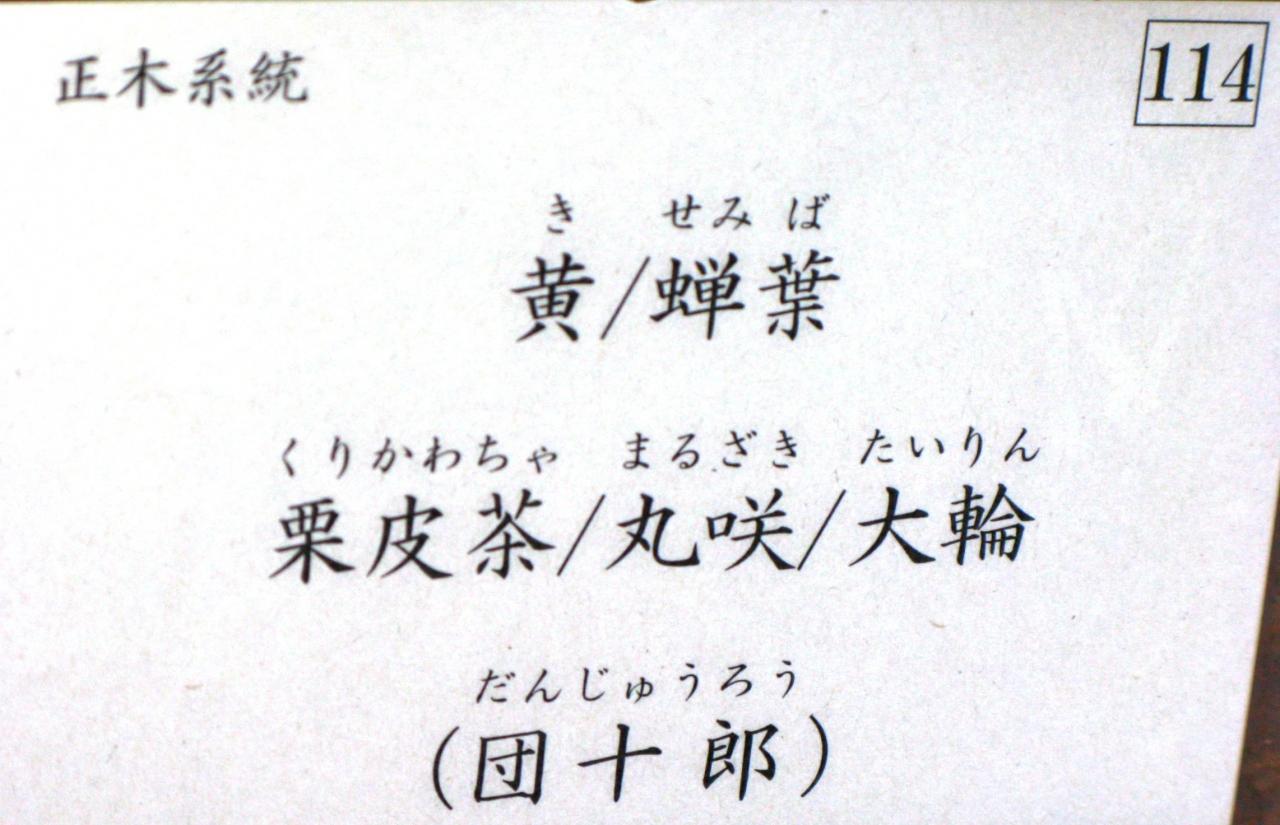 正木系統
114
き せみ ば
黄/蝉葉
くりかわちゃ まるざき たいりん
栗皮茶/丸咲/大輪
だんじゅうろう
(団十郎)